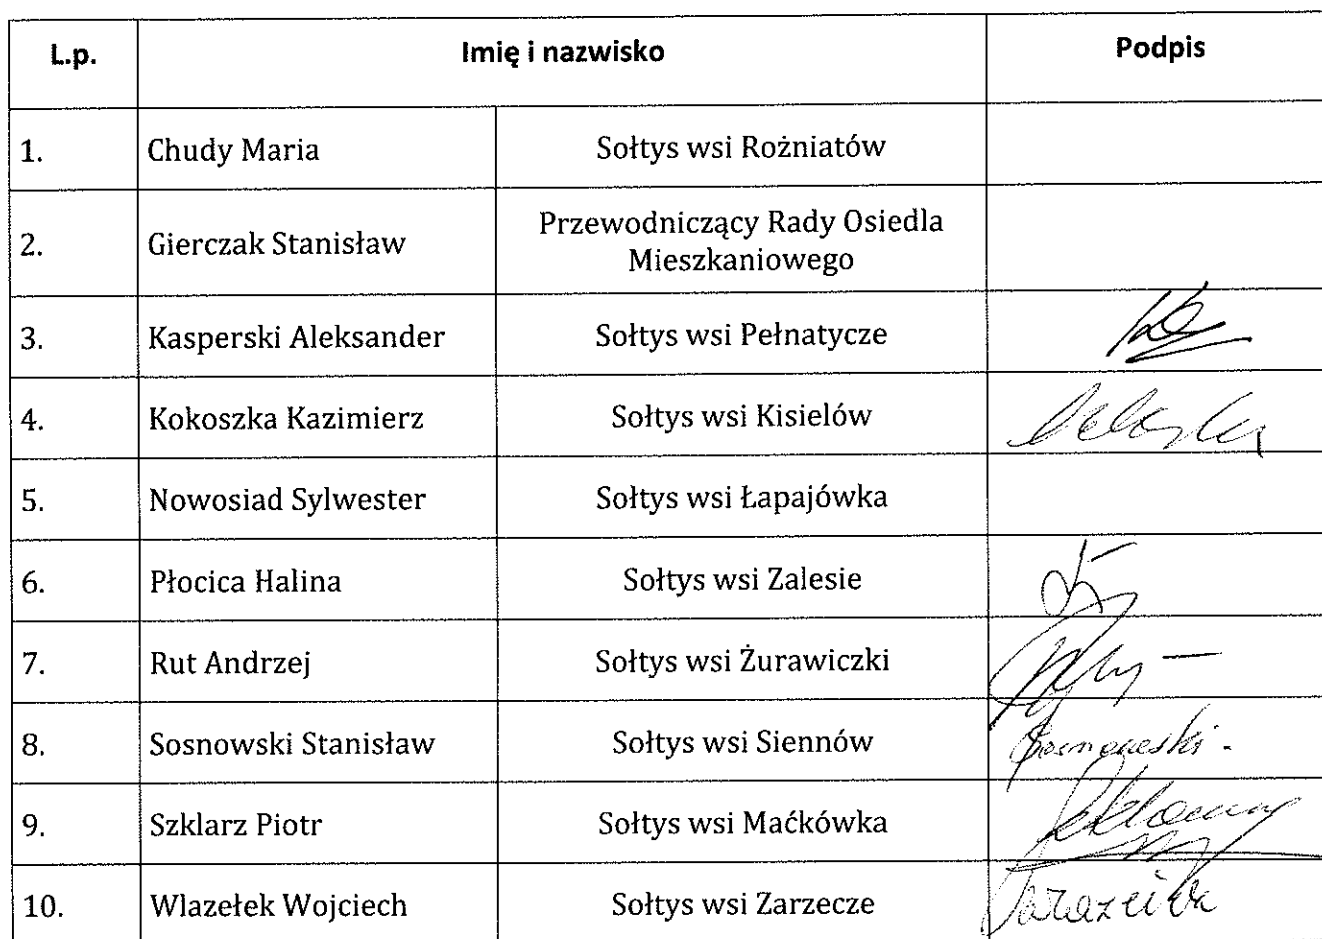 L.p. Imię i nazwisko Podpis
1. Chudy Maria Sołtys wsi Rożniatów
2. Gierczak Stanisław Przewodniczący Rady Osiedla
Mieszkaniowego
3. Kasperski Aleksander Sołtys wsi Pełnatycze
4. Kokoszka Kazimierz Sołtys wsi Kisielów
5. Nowosiad Sylwester Sołtys wsi Łapajówka
6. Płocica Halina Sołtys wsi Zalesie
7. Rut Andrzej Sołtys wsi Żurawiczki
8. Sosnowski Stanisław Sołtys wsi Siennów Sosnowski
9. Szklarz Piotr Sołtys wsi Maćkówka
10. Wlazełek Wojciech Sołtys wsi Zarzecze